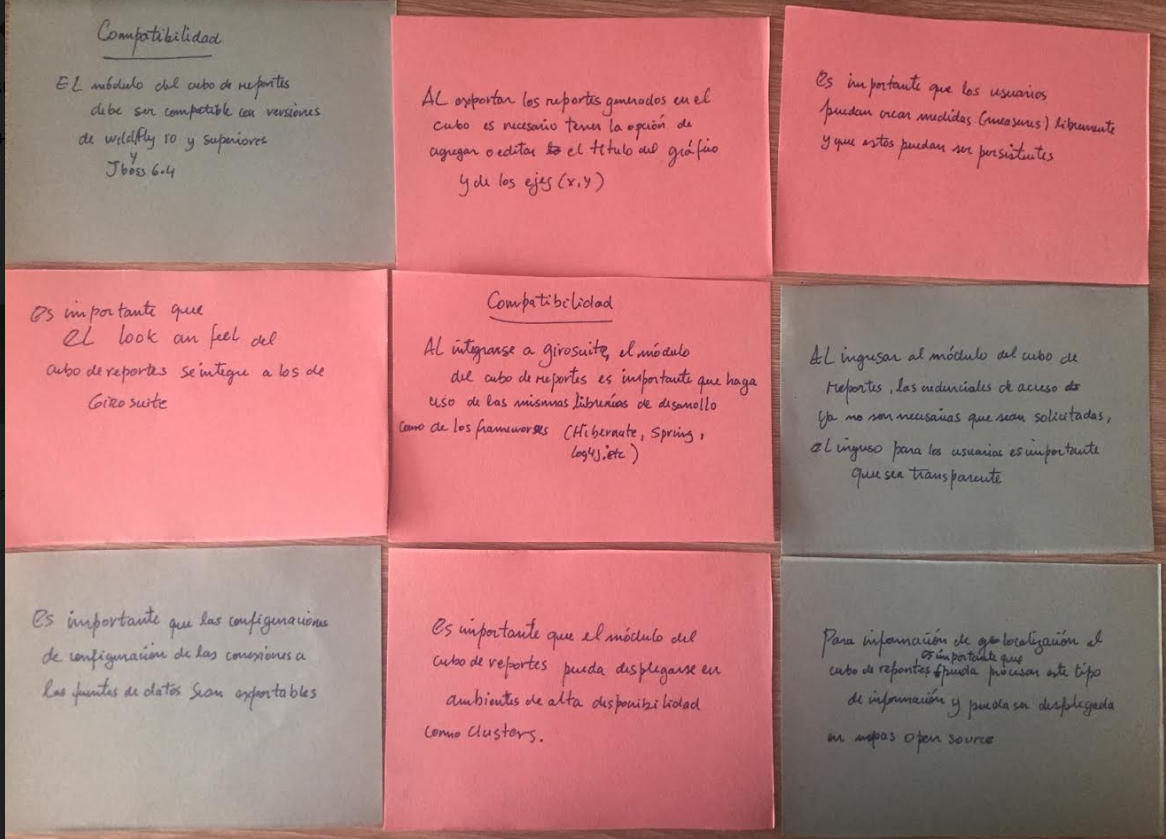 Compatibilidad
EL módulo del cubo de reportes
debe ser compatible con versiones
de wildfly 10 y superiores
y
Jboss 6.4
AL exportar los reportes generados en el
cubo es necesario tener la opción de
agregar o editar el título del gráfico
y de los ejes (x,y)
Es importante que los usuarios
puedan crear medidas (measures) libremente
y que estos puedan ser persistentes
Es importante que
el look an feel del
cubo de reportes se integre a los de
Giro suite
Compatibilidad
AL integrarse a girosuite, el módulo
del cubo de reportes es importante que haga
uso de las mismas librerías de desarrollo
como de los frameworks (Hibernate, Spring,
log4j, etc)
AL ingresar al módulo del cubo de
reportes, las credenciales de acceso
ya no son necesarias que sean solicitadas,
el ingreso para los usuarios es importante
que sea transparente
Es importante que las configuraciones
de configuración de las conexiones a
las fuentes de datos sean exportables
Es importante que el módulo del
cubo de reportes pueda desplegarse en
ambientes de alta disponibilidad
como clusters.
Para información de geolocalización el
es importante que
cubo de reportes pueda procesar este tipo
de información y pueda ser desplegada
en mapas open source